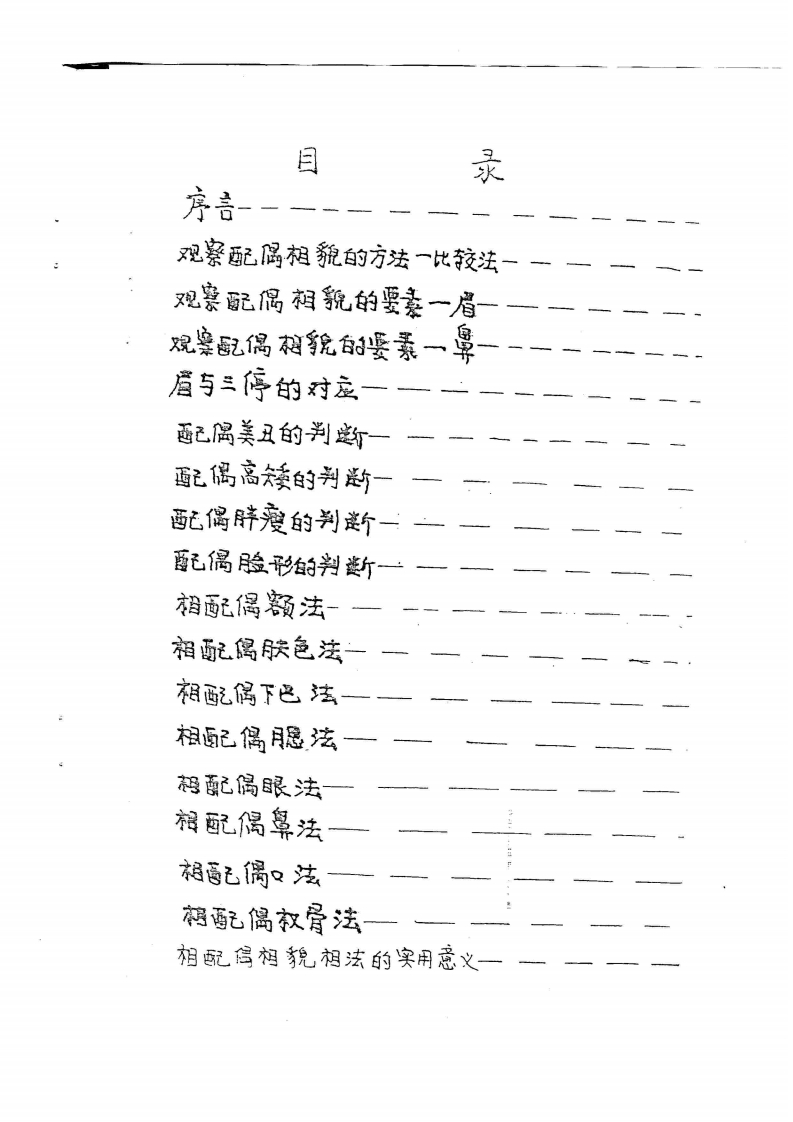 目 录
序言
观察配偶相貌的方法一比较法
观察配偶相貌的要素一眉
观察配偶相貌的要素一鼻
眉与三停的对应
配偶美丑的判断
配偶高矮的判断
配偶胖瘦的判断
配偶脸形的判断
相配偶额法
相配偶肤色法
相配偶下巴法
相配偶腮法
相配偶眼法
相配偶鼻法
相配偶口法
相配偶权骨法
相配偶相貌相法的实用意义